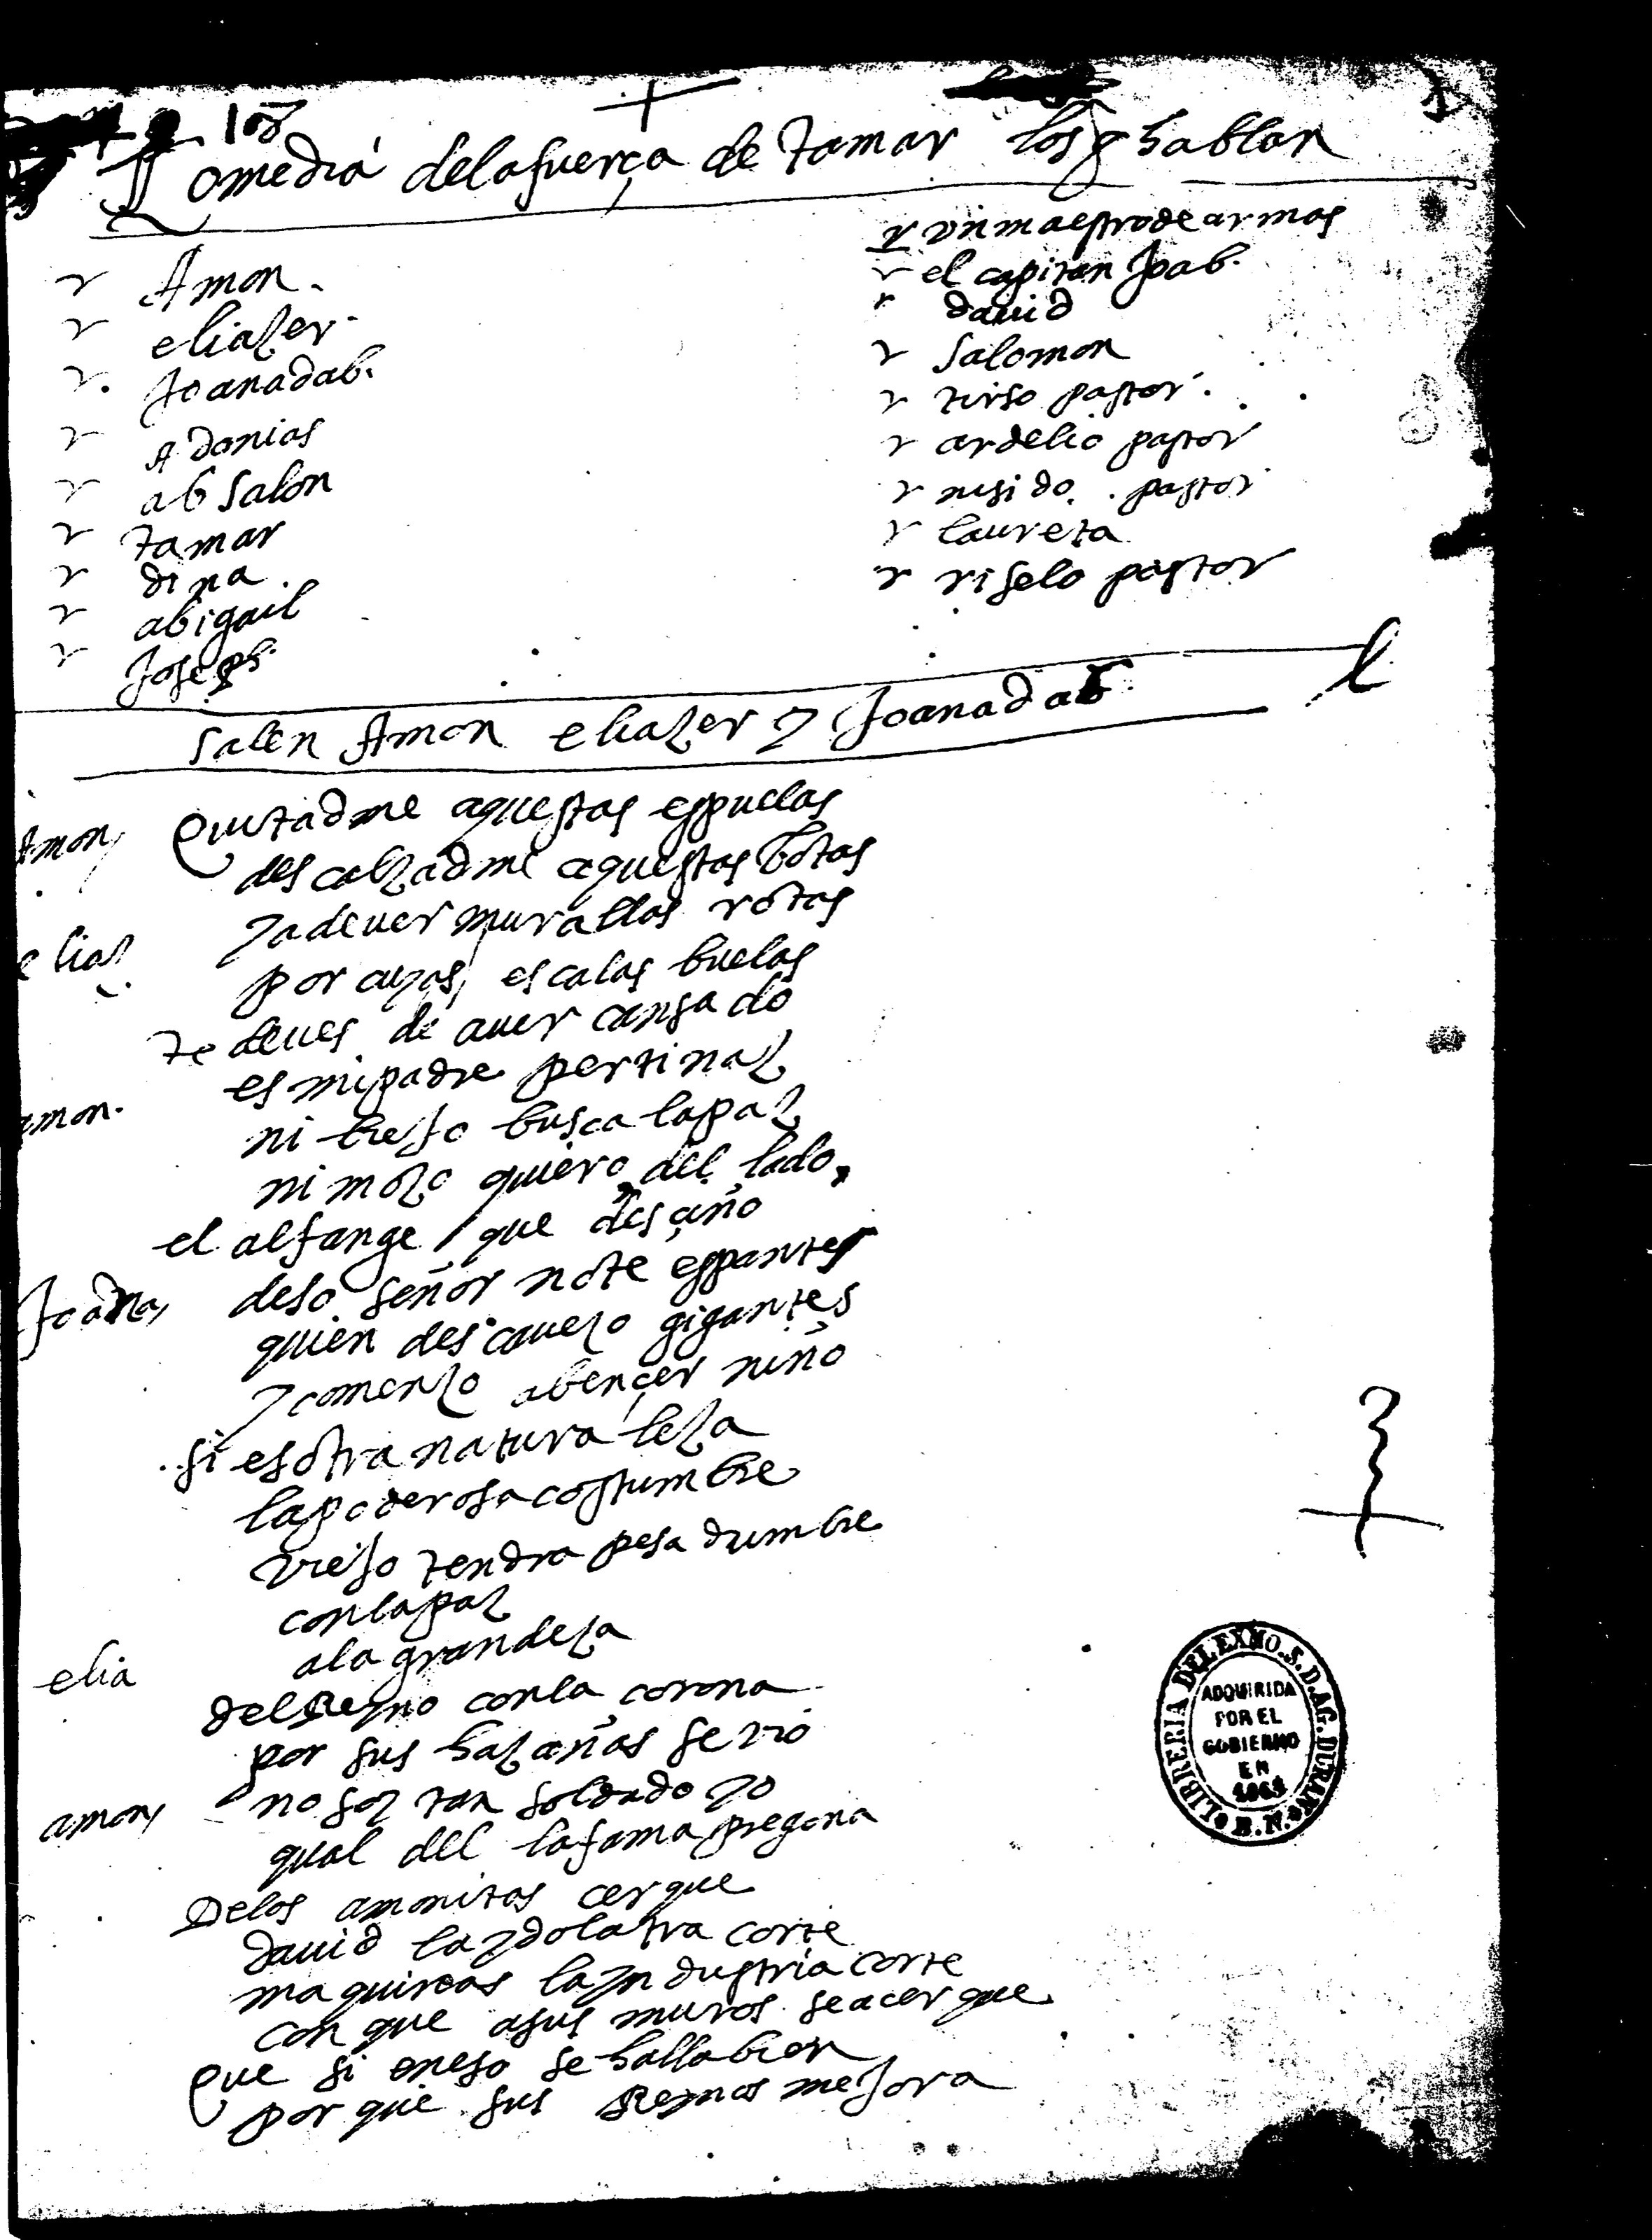 108
Comedia dela fuerça de tamar los q hablan
Amon.
eliazer
Joanadab.
Adonias
absalon
tamar
dina
abigail
Joseph
vn maestro de armas
el capitan Joab.
dauid
salomon
tirso pastor.
ardelio pastor
nisido. pastor
laureta
riselo pastor
salen Amon eliazer y Joanadab
Amon Quitadme aquestas espuelas
descalzadme aquestas botas
eliaz ya de uer murallas rotas
por cuyas escalas buelas
te deues de auer cansado
amon. es mi padre pertinaz
ni biejo busca la paz
ni mozo quiero del lado,
el alfange que desciño
Joana deso señor no te espantes
quien descauezo gigantes
y comenzo a bençer niño
si es otra naturaleza
la poderosa costumbre
viejo tendra pesadumbre
con la paz
elia a la grandeza
del Reyno con la corona
por sus hazañas se vio
amon no soy tan soldado yo
qual del la fama pregona
De los amonitas cerque
dauid la ydolatra corte
maquinas la yndustria corte
con que a sus muros se acerque
Que si en eso se halla bien
por que sus Reynos mejora
LIBRERIA DEL EXMO. S. D. AG. DURAN
B. N.
ADQUIRIDA
POR EL
GOBIERNO
EN
1863